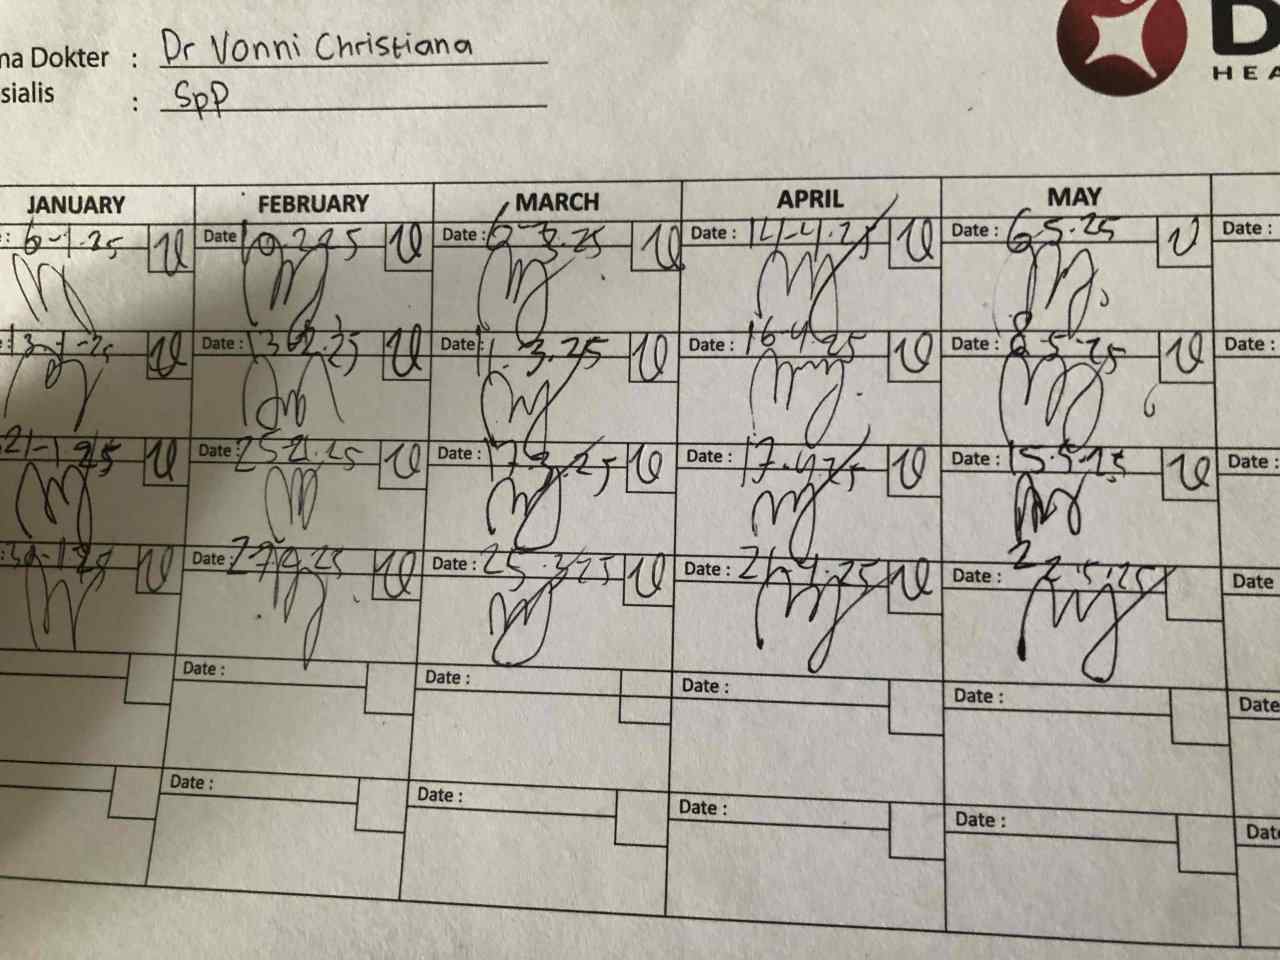 ma Dokter : Dr Vonni Christiana
sialis : SpP
D
HEA
JANUARY FEBRUARY MARCH APRIL MAY
: 6-1-25 Date : 10.2.25 Date : 6-3.25 Date : 14-4.25 Date : 6.5.25 Date :
: 13-1-25 Date : 13.2.25 Date : 11.3.25 Date : 16-4.25 Date : 8-5-25 Date :
21-1-25 Date : 25.2.25 Date : 17-3.25 Date : 17.4.25 Date : 15.5.25 Date :
: 30-1-25 Date : 27.2.25 Date : 25.3.25 Date : 21-4.25 Date : 22.5.25 Date
Date : Date : Date : Date : Date
Date : Date : Date : Date : Date